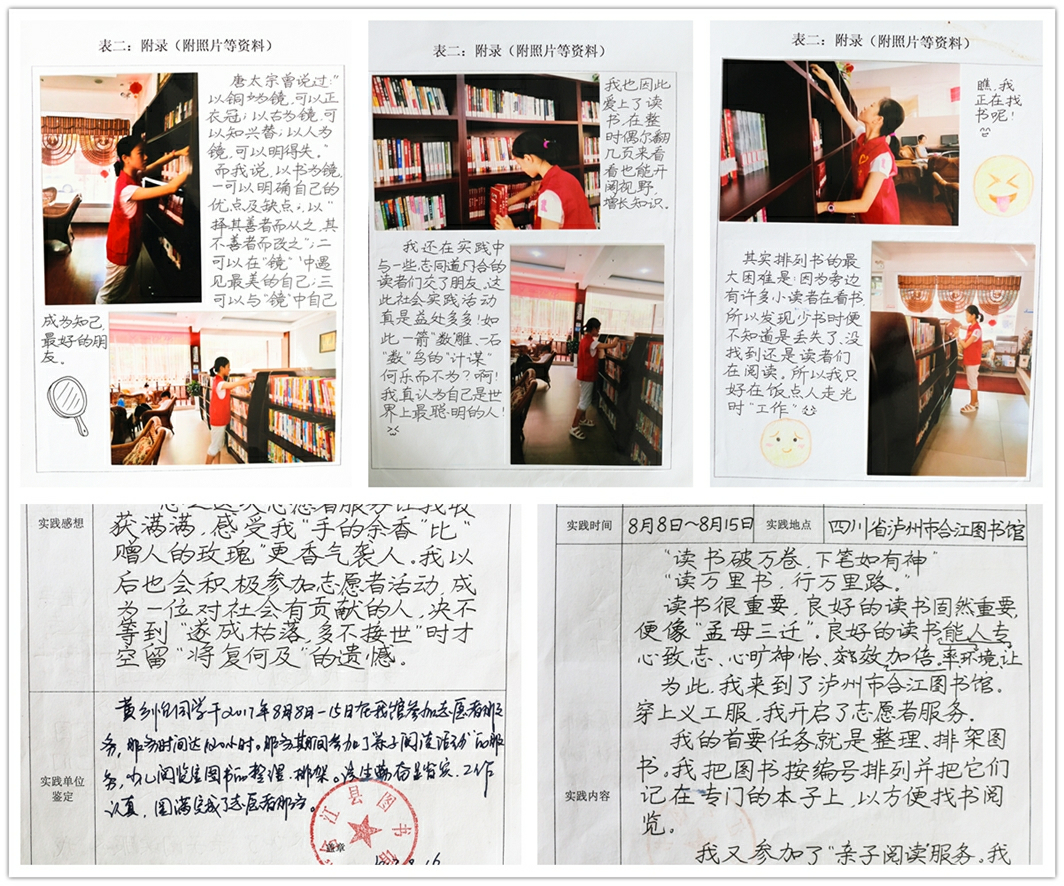 表二：附录（附照片等资料）
唐太宗曾说过："
以铜为镜，可以正
衣冠；以古为镜，可
以知兴替；以人为
镜，可以明得失。"
而我说，以书为镜，
一可以明确自己的
优点及缺点，以"
择其善者而从之，其
不善者而改之"；二
可以在"镜"中遇
见最美的自己；三
可以与"镜"中自己
成为知己，
最好的朋
友。
表二：附录（附照片等资料）
我也因此
爱上了读
书，在整
时偶尔翻
几页来看
看也能开
阔视野，
增长知识。
我还在实践中
与一些志同道门合的
读者们交了朋友，这
此社会实践活动
真是益处多多！如
此一箭"数雕、一石
"数"鸟的"计谋"
何乐而不为？啊！
我真认为自己是世
界上最聪明的人！
表二：附录（附照片等资料）
瞧，我
正在找
书呢！
其实排列书的最
大困难是：因为旁边
有许多小读者在看书，
所以发现少书时便
不知道是丢失了，没
找到还是读者们
在阅读。所以我只
好在饭点人走光
时"工作"
实践感想
获满满，感受我"手的余香"比"
赠人的玫瑰"更香气袭人。我以
后也会积极参加志愿者活动，成
为一位对社会有贡献的人，决不
等到"遂成枯落，多不接世"时才
空留"将复何及"的遗憾。
实践单位
鉴定
同学于2017年8月8日-15日在我馆参加志愿者服
务，服务时间达120小时。服务期间参加了"亲子阅读活动"的服
务，少儿阅览室图书的整理、排架。该生勤奋踏实，工作
认真，圆满完成了志愿者服务。
江县图书馆
盖章
实践时间
8月8日～8月15日
实践地点
四川省泸州市合江图书馆
实践内容
"读书破万卷，下笔如有神"
"读万里书，行万里路。"
读书很重要，良好的读书固然重要，
便像"孟母三迁"。良好的读书能人专
心致志、心旷神怡、效加倍。率环境让
为此，我来到了泸州市合江图书馆。
穿上义工服，我开启了志愿者服务。
我的首要任务就是整理、排架图
书。我把图书按编号排列并把它们
记在专门的本子上，以方便找书阅
览。
我又参加了"亲子阅读"服务。我